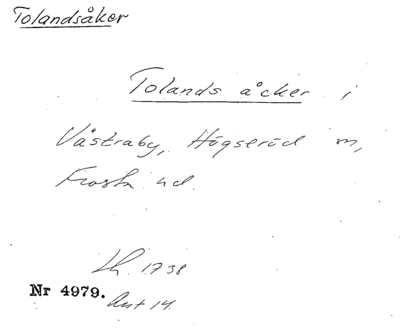 Tolandsåker
Tolands åcker i
Västraby, Högseröd sn,
Frosta hd.
Lh. 1738
Nr 4979.
Ant 14.